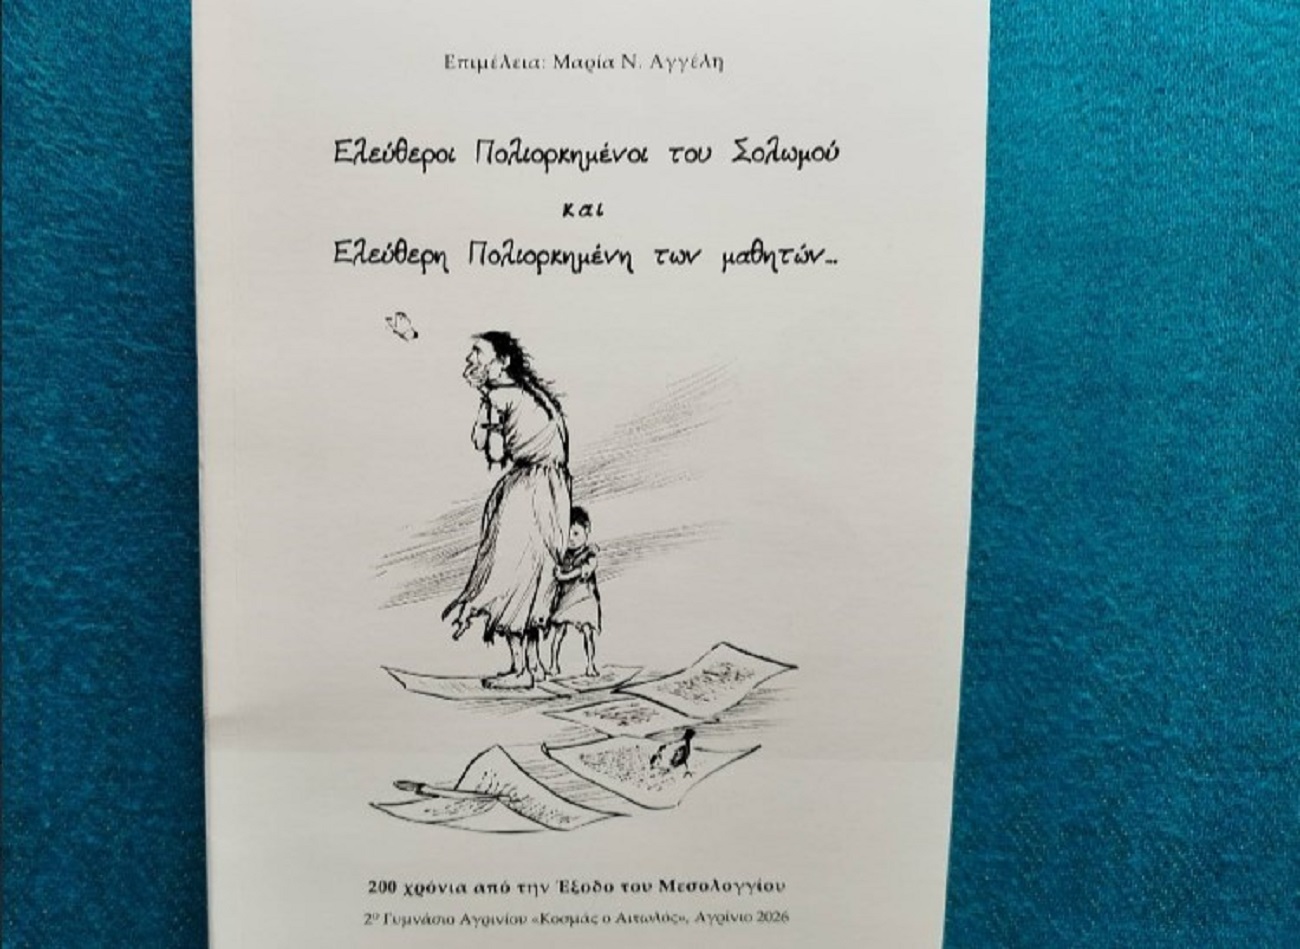 Επιμέλεια: Μαρία Ν. Αγγέλη
Ελεύθεροι Πολιορκημένοι του Σολωμού
και
Ελεύθερη Πολιορκημένη των μαθητών...
200 χρόνια από την Έξοδο του Μεσολογγίου
2ο Γυμνάσιο Αγρινίου «Κοσμάς ο Αιτωλός», Αγρίνιο 2026